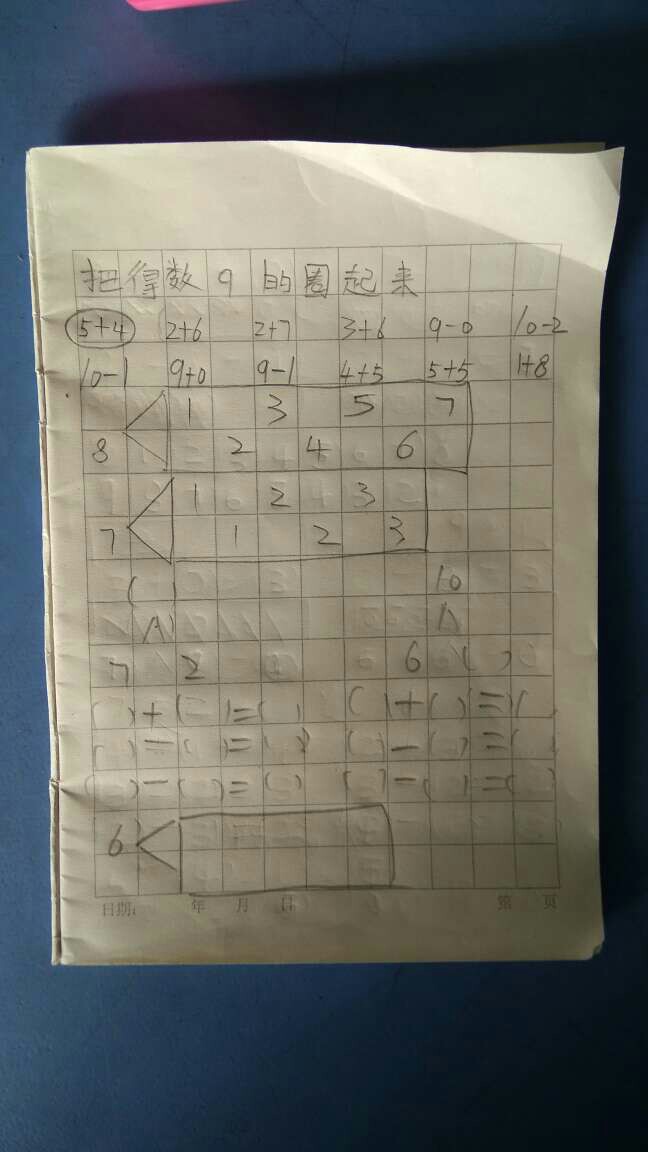 把得数9的圈起来
5+4 2+6 2+7 3+6 9-0 10-2
10-1 9+0 9-1 4+5 5+5 1+8
1 3 5 7
8 2 4 6
1 2 3
7 1 2 3
( ) 10
7 2 6 ( )
( )+( )=( ) ( )+( )=( )
( )-( )=( ) ( )-( )=( )
( )-( )=( ) ( )-( )=( )
6
日期: 年 月 日 第 页